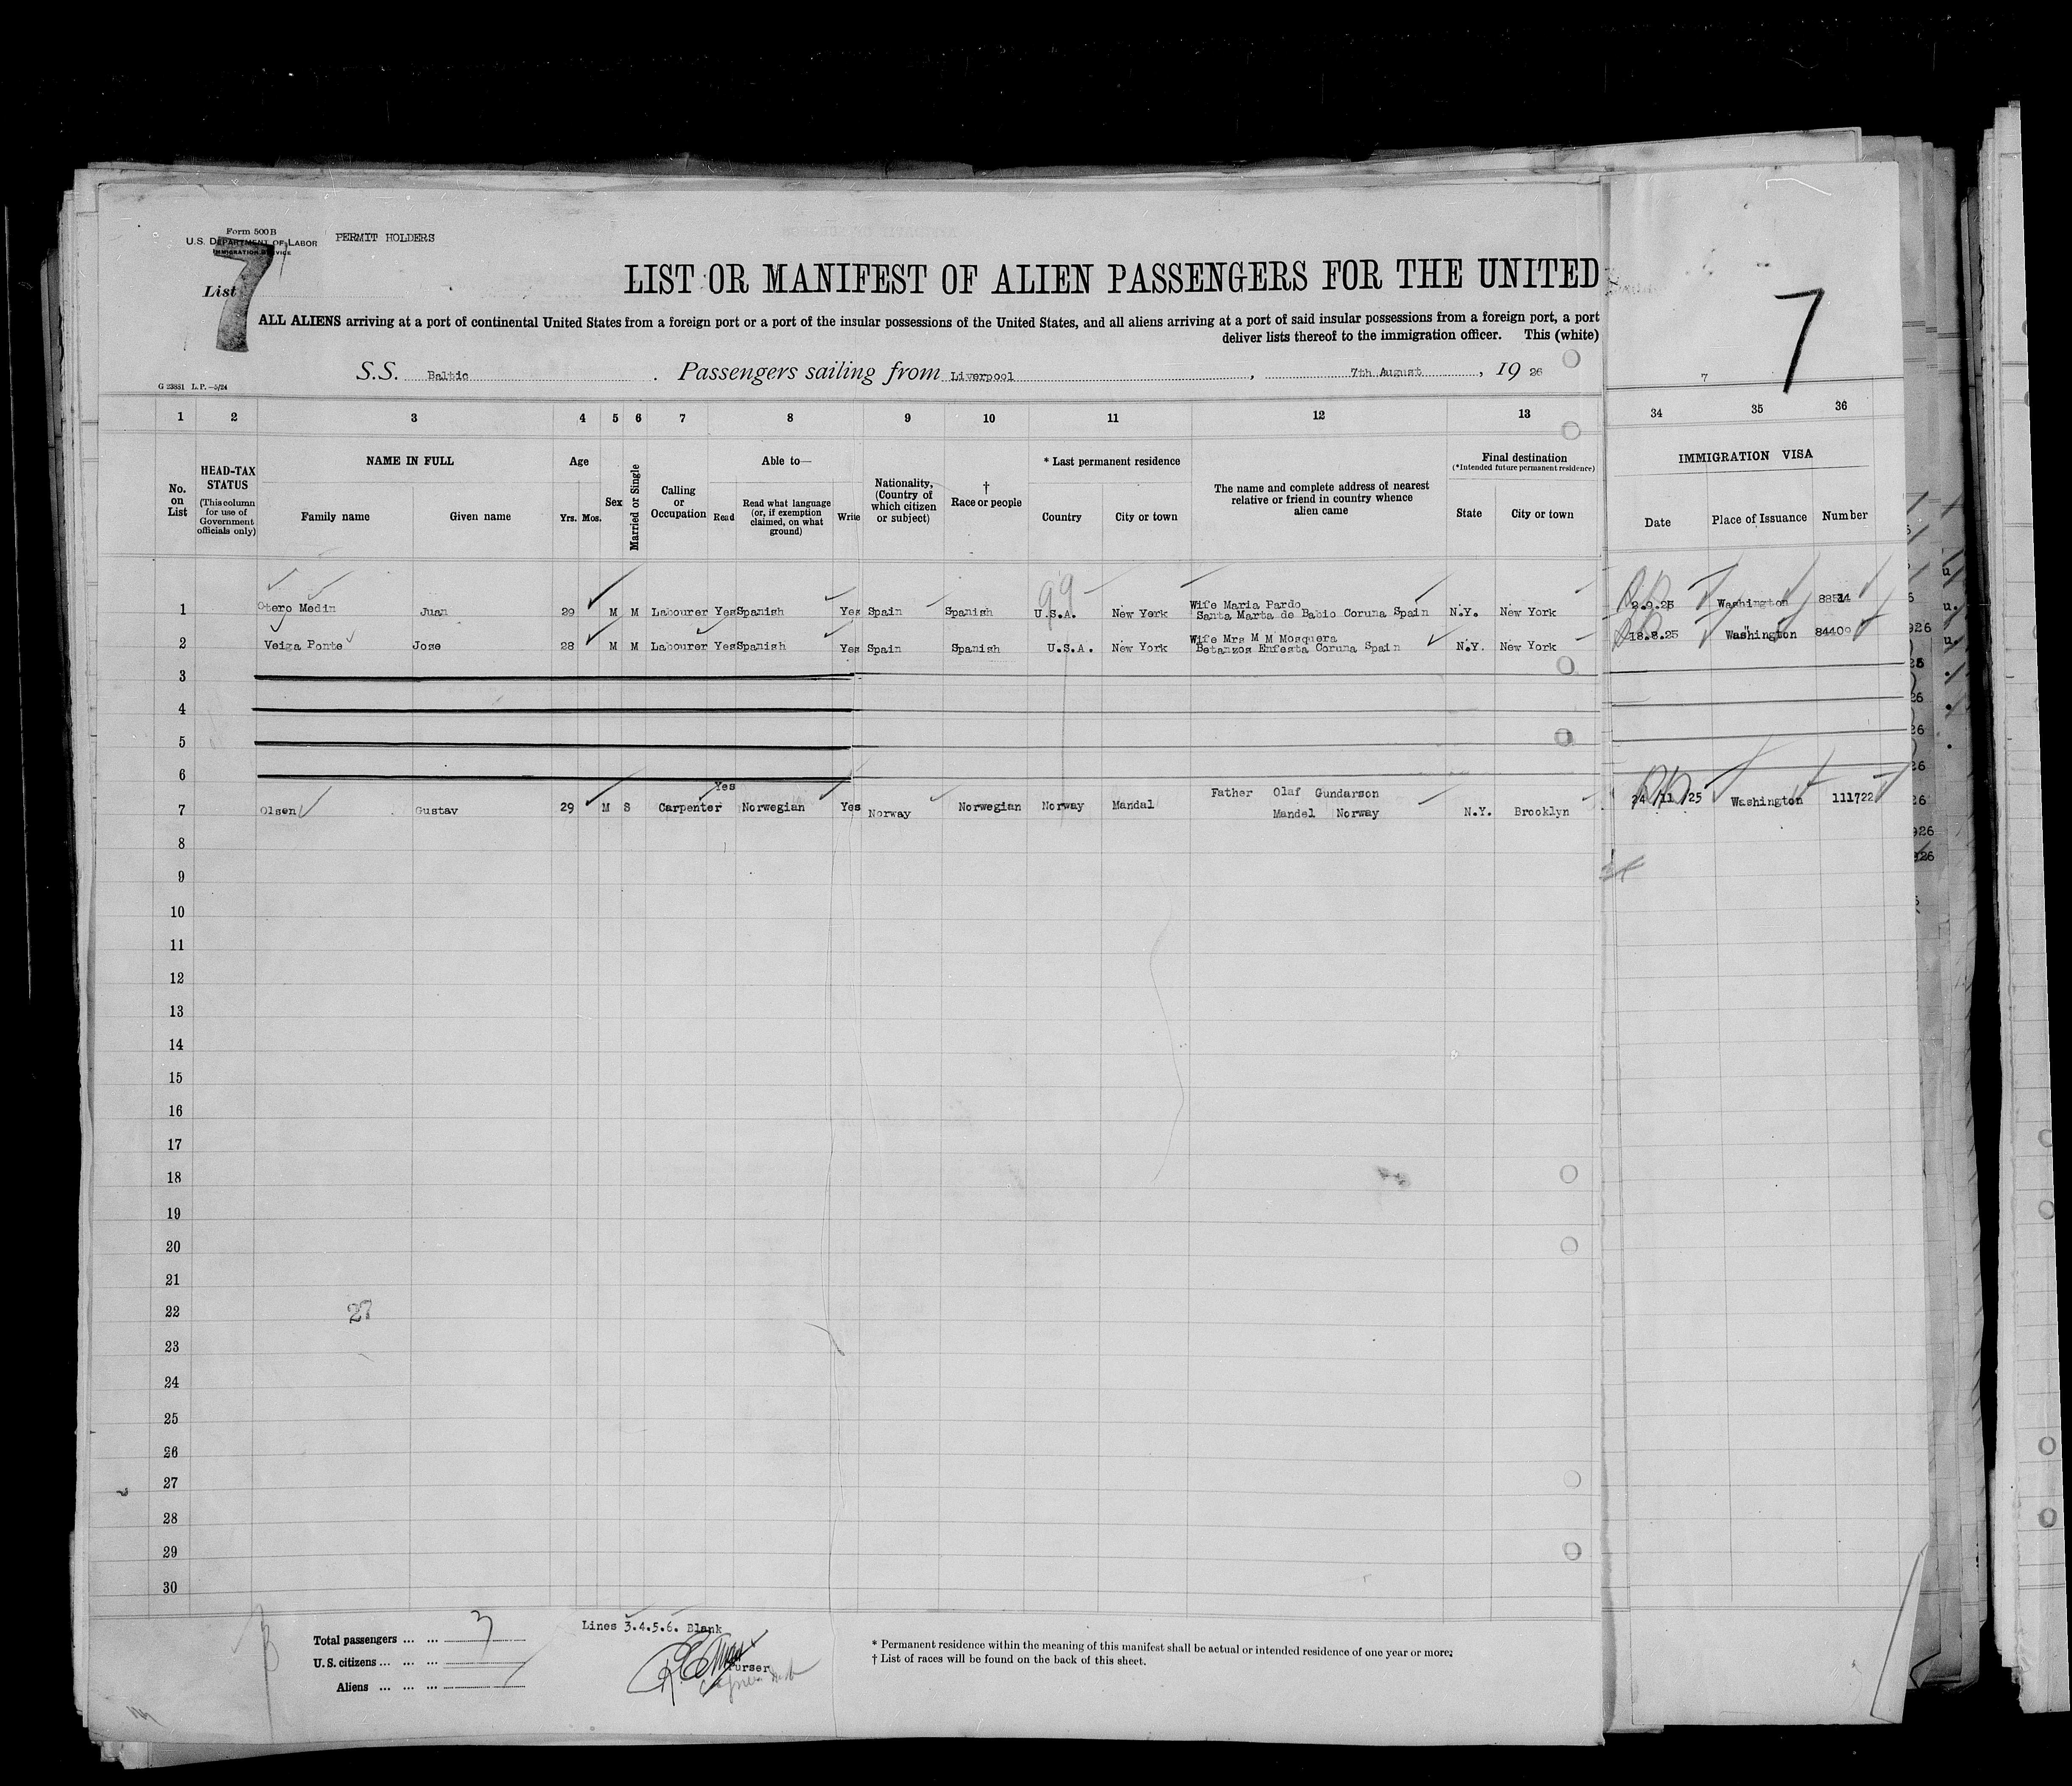 Form 500 B
U.S. DEPARTMENT OF LABOR
IMMIGRATION SERVICE
PERMIT HOLDERS
7
List
LIST OR MANIFEST OF ALIEN PASSENGERS FOR THE UNITED
ALL ALIENS arriving at a port of continental United States from a foreign port or a port of the insular possessions of the United States, and all aliens arriving at a port of said insular possessions from a foreign port, a port
deliver lists thereof to the immigration officer. This (white)
G 23881 L.P.—5/24
S.S. Baltic. Passengers sailing from Liverpool, 7th August, 19 26
7
7
1 2 3 4 5 6 7 8 9 10 11 12 13 34 35 36
No. on List
HEAD-TAX STATUS (This column for use of Government officials only)
NAME IN FULL
Family name Given name
Age
Yrs. Mos.
Sex
Married or Single
Calling or Occupation
Able to—
Read
Read what language (or, if exemption claimed, on what ground)
Write
Nationality, (Country of which citizen or subject)
† Race or people
* Last permanent residence
Country City or town
The name and complete address of nearest relative or friend in country whence alien came
Final destination
(*Intended future permanent residence)
State City or town
IMMIGRATION VISA
Date Place of Issuance Number
99
1 Otero Medin Juan 29 M M Labourer Yes Spanish Yes Spain Spanish U.S.A. New York Wife Maria Pardo Santa Marta de Babio Coruna Spain N.Y. New York 2.9.25 Washington
2 Veiga Ponte Jose 28 M M Labourer Yes Spanish Yes Spain Spanish U.S.A. New York Wife Mrs M M Mosquera Betanzos Enfesta Coruna Spain N.Y. New York 18.8.25 Washington 84409
3
4
5
6
7 Olsen Gustav 29 M S Carpenter Yes Norwegian Yes Norway Norwegian Norway Mandal Father Olaf Gundarson Mandel Norway N.Y. Brooklyn 24/11/25 Washington 111722
8
9
10
11
12
13
14
15
16
17
18
19
20
21
22 27
23
24
25
26
27
28
29
30
Total passengers ... ... 3
U.S. citizens ... ... ...
Aliens ... ... ...
Lines 3.4.5.6. Blank
Purser
* Permanent residence within the meaning of this manifest shall be actual or intended residence of one year or more.
† List of races will be found on the back of this sheet.